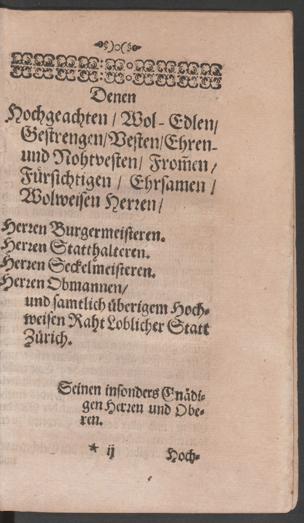 Denen
Hochgeachten / Wol-Edlen/
Gestrengen/Vesten/Ehren-
und Nohtvesten/ From̃en/
Fürsichtigen / Ehrsamen /
Wolweisen Herren/
Herren Burgermeisteren.
Herren Statthalteren.
Herren Seckelmeisteren.
Herren Obmannen/
und samtlich überigem Hoch-
weisen Raht Loblicher Statt
Zürich.
Seinen insonders Gnädi-
gen Herren und Obe-
ren.
* ij Hoch-